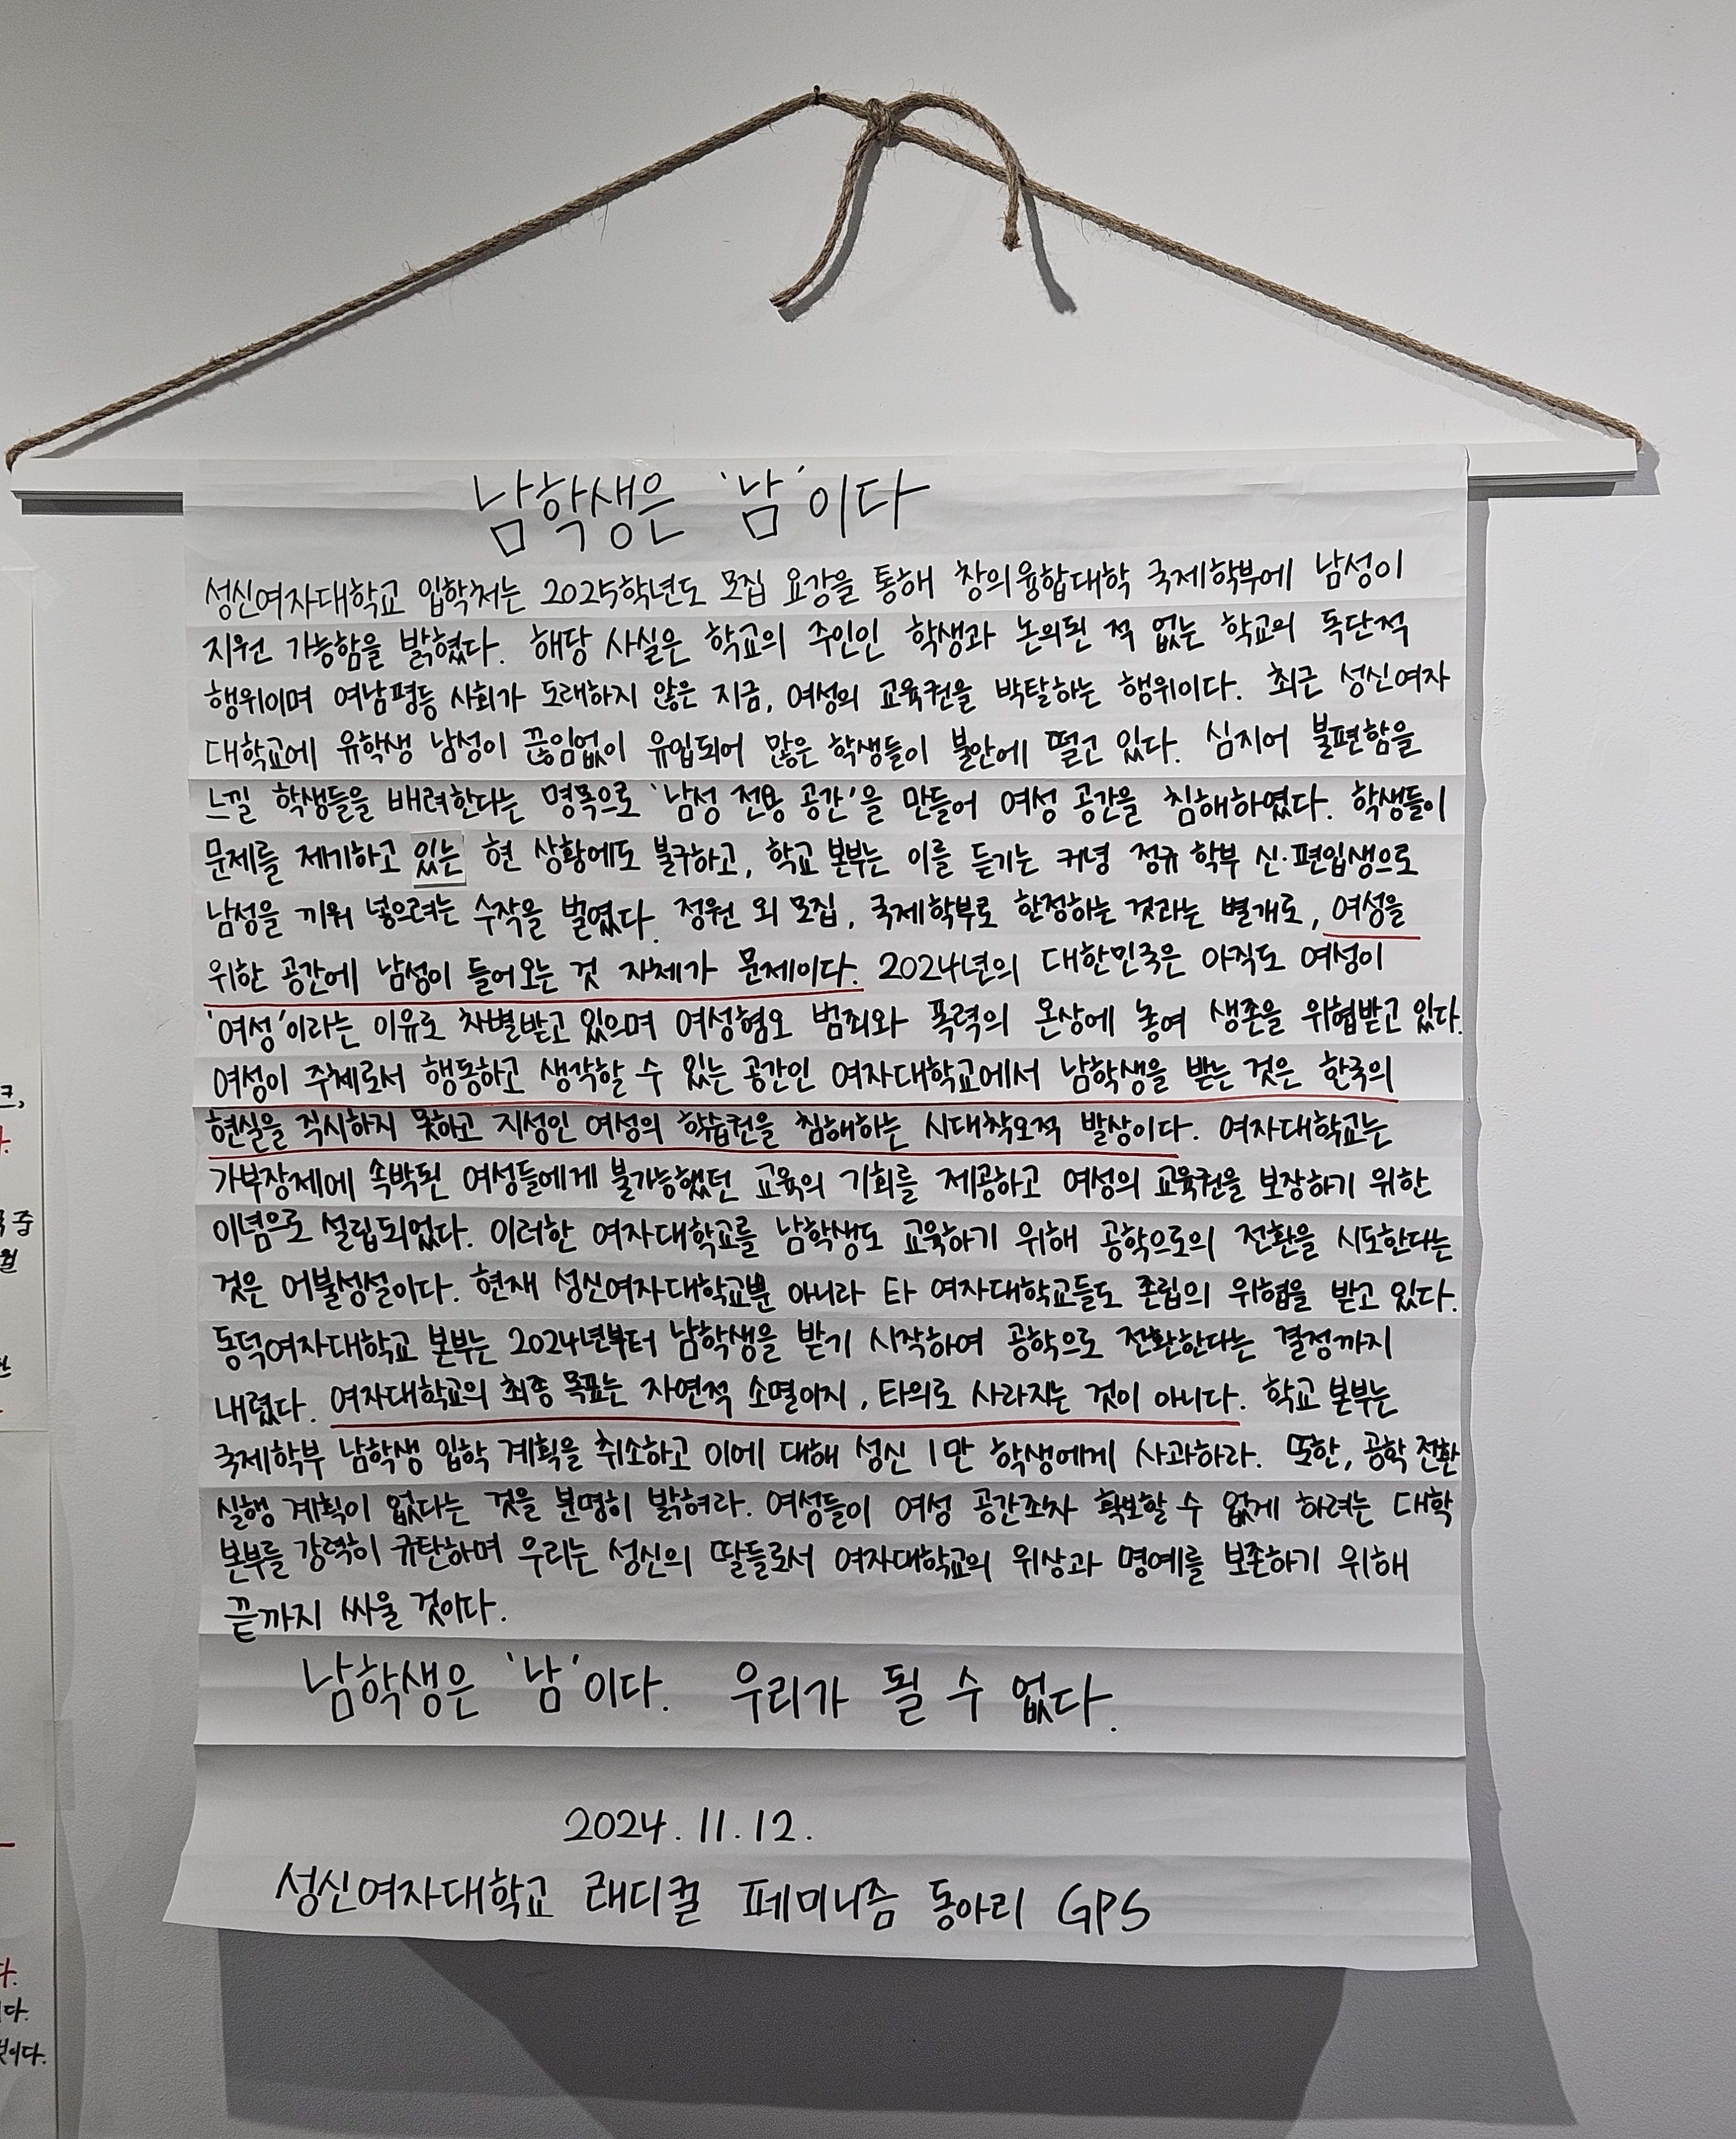 남학생은 '남'이다
성신여자대학교 입학처는 2025학년도 모집 요강을 통해 창의융합대학 국제학부에 남성이
지원 가능함을 밝혔다. 해당 사실은 학교의 주인인 학생과 논의된 적 없는 학교의 독단적
행위이며 여남평등 사회가 도래하지 않은 지금, 여성의 교육권을 박탈하는 행위이다. 최근 성신여자
대학교에 유학생 남성이 끊임없이 유입되어 많은 학생들이 불안에 떨고 있다. 심지어 불편함을
느낄 학생들을 배려한다는 명목으로 '남성 전용 공간'을 만들어 여성 공간을 침해하였다. 학생들이
문제를 제기하고 있는 현 상황에도 불구하고, 학교 본부는 이를 듣기는 커녕 정규 학부 신·편입생으로
남성을 끼워 넣으려는 수작을 벌였다. 정원 외 모집, 국제학부로 한정하는 것과는 별개로, 여성을
위한 공간에 남성이 들어오는 것 자체가 문제이다. 2024년의 대한민국은 아직도 여성이
'여성'이라는 이유로 차별받고 있으며 여성혐오 범죄와 폭력의 온상에 놓여 생존을 위협받고 있다.
여성이 주체로서 행동하고 생각할 수 있는 공간인 여자대학교에서 남학생을 받는 것은 한국의
현실을 직시하지 못하고 지성인 여성의 학습권을 침해하는 시대착오적 발상이다. 여자대학교는
가부장제에 속박된 여성들에게 불가능했던 교육의 기회를 제공하고 여성의 교육권을 보장하기 위한
이념으로 설립되었다. 이러한 여자대학교를 남학생도 교육하기 위해 공학으로의 전환을 시도한다는
것은 어불성설이다. 현재 성신여자대학교뿐 아니라 타 여자대학교들도 존립의 위협을 받고 있다.
동덕여자대학교 본부는 2024년부터 남학생을 받기 시작하여 공학으로 전환한다는 결정까지
내렸다. 여자대학교의 최종 목표는 자연적 소멸이지, 타의로 사라지는 것이 아니다. 학교 본부는
국제학부 남학생 입학 계획을 취소하고 이에 대해 성신 1만 학생에게 사과하라. 또한, 공학 전환
실행 계획이 없다는 것을 분명히 밝혀라. 여성들이 여성 공간조차 확보할 수 없게 하려는 대학
본부를 강력히 규탄하며 우리는 성신의 딸들로서 여자대학교의 위상과 명예를 보존하기 위해
끝까지 싸울 것이다.
남학생은 '남'이다. 우리가 될 수 없다.
2024. 11. 12.
성신여자대학교 래디컬 페미니즘 동아리 GPS